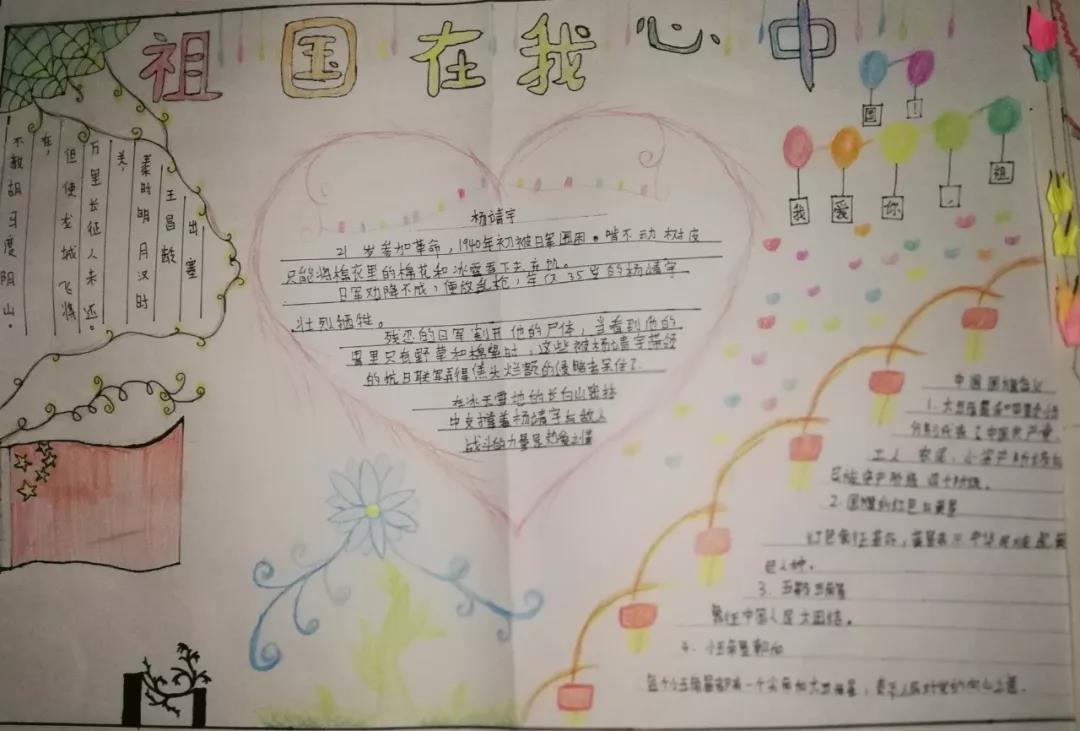 祖国在我心中
出塞
王昌龄
秦时明月汉时
关，
万里长征人未还。
但使龙城飞将
在，
不教胡马度阴山。
杨靖宇
21岁参加革命，1940年初被日军围困。啃不动树皮
只能将棉衣里的棉花和冰雪吞下去充饥。
日军劝降不成，便放乱枪，年仅35岁的杨靖宇
壮烈牺牲。
残忍的日军割开他的尸体，当看到他的
胃里只有野草和棉絮时，这些被杨靖宇带领
的抗日联军弄得焦头烂额的侵略者呆住了
在冰天雪地的长白山密林
中支撑着杨靖宇与敌人
战斗的力量是热爱之情
国！
我爱你，祖
中国国旗含义
1. 大五角星和四星小
分别代表了中国共产党，
工人 农民，小资产阶级与
民族资产阶级 四个阶级。
2. 国旗的红色与黄星
红色象征革命，黄星表示中华民族是黄
色人种。
3. 五颗五角星
象征中国人民大团结。
4. 小五角星朝向
每个小五角星都有一个尖角和大五角星，表示人民对党的向心之意。